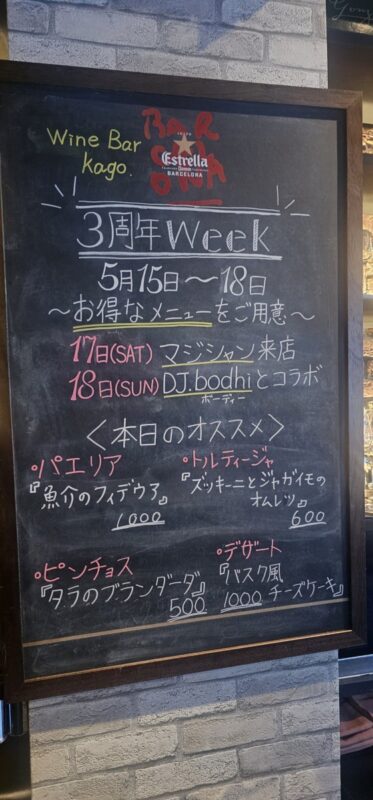 Wine Bar
kago.
BAR
Estrella
BARCELONA
3周年Week
5月15日〜18日
〜お得なメニューをご用意〜
17日(SAT) マジシャン来店
18日(SUN) DJ.bodhiとコラボ
ボーディー
〈本日のオススメ〉
・パエリア
『魚介のフィデウア』
1000
・トルティージャ
『ズッキーニとジャガイモの
オムレツ』
600
・ピンチョス
『タラのブランダーダ』
500
・デザート
『バスク風
チーズケーキ』
1000